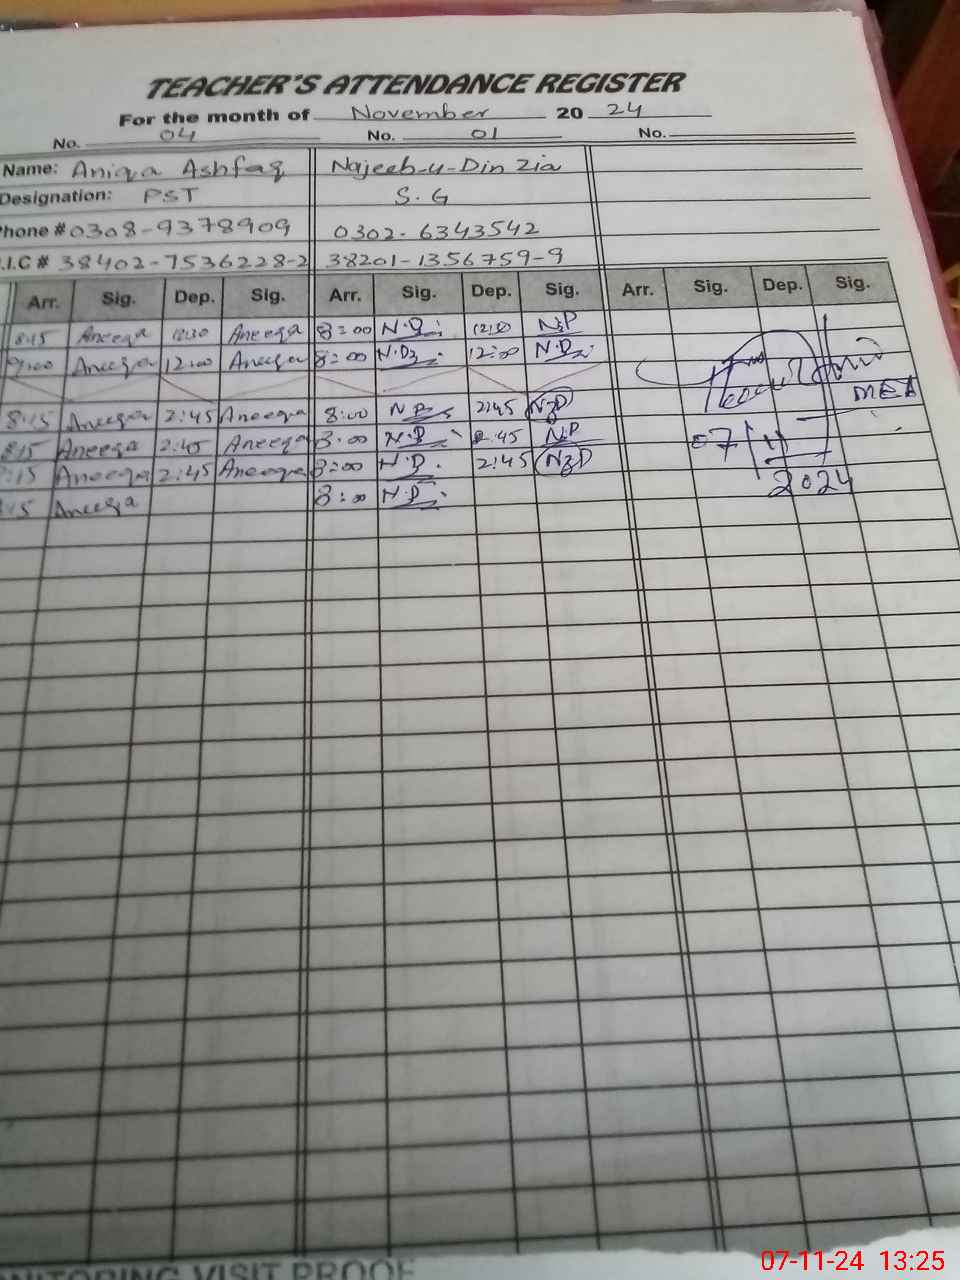 TEACHER'S ATTENDANCE REGISTER
For the month of November 20 24
No. 04 No. 01 No.
Name: Aniqa Ashfaq Najeeb-u-Din Zia
Designation: PST S.G
Phone # 0308-9378909 0302-6343542
.I.C # 38402-7536228-2 38201-1356759-9
Arr. Sig. Dep. Sig. Arr. Sig. Dep. Sig. Arr. Sig. Dep. Sig.
8:15 Aneeqa 12:30 Aneeqa 8:00 N.D
9:00 Aneeqa 12:00 Aneeqa 8:00 N.D 12:00 N.D
8:15 Aneeqa 2:45 Aneeqa 8:00 N.D 2:45 NZD
8:15 Aneeqa 2:45 Aneeqa 8:00 N.D 2:45 N.D
:15 Aneeqa 2:45 Aneeqa 8:00 N.D. 2:45 NZD
:15 Aneeqa 8:00 N.D.
MEA
07/11/2024
MONITORING VISIT PROOF
07-11-24 13:25